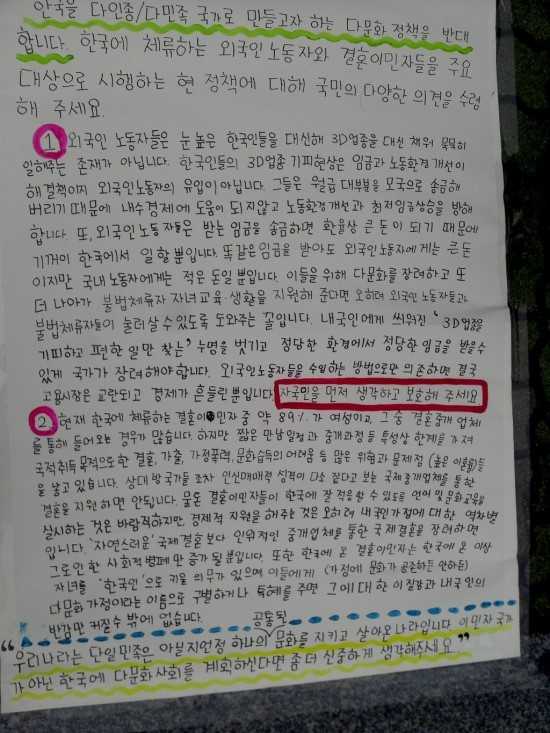 한국을 다인종/다민족 국가로 만들고자 하는 다문화 정책을 반대
합니다. 한국에 체류하는 외국인 노동자와 결혼이민자들을 주요
대상으로 시행하는 현 정책에 대해 국민의 다양한 의견을 수렴
해 주세요.
1 외국인 노동자들은 눈 높은 한국인들을 대신해 3D업종을 대신 채워 묵묵히
일해주는 존재가 아닙니다. 한국인들의 3D업종 기피현상은 임금과 노동환경 개선이
해결책이지 외국인노동자의 유입이 아닙니다. 그들은 월급 대부분을 모국으로 송금해
버리기 때문에 내수경제에 도움이 되지않고 노동환경개선과 최저임금상승을 방해
합니다. 또, 외국인 노동자들은 받는 임금을 송금하면 환율상 큰 돈이 되기 때문에
기꺼이 한국에서 일할 뿐입니다. 똑같은 임금을 받아도 외국인 노동자에게는 큰 돈
이지만 국내 노동자에게는 적은 돈일 뿐입니다. 이들을 위해 다문화를 장려하고 또
더 나아가 불법체류자 자녀교육·생활을 지원해 준다면 오히려 외국인 노동자들과
불법체류자들이 눌러살 수 있도록 도와주는 꼴입니다. 내국인에게 씌워진 '3D업종을
기피하고 편한 일만 찾는' 누명을 벗기고 정당한 환경에서 정당한 임금을 받을 수
있게 국가가 장려해야 합니다. 외국인노동자들을 수입하는 방법으로만 의존하면 결국
고용시장은 교란되고 경제가 흔들릴 뿐입니다. 자국민을 먼저 생각하고 보호해 주세요
2 현재 한국에 체류하는 결혼이민자 중 약 89%가 여성이고, 그 중 결혼중개 업체
를 통해 들어오는 경우가 많습니다. 하지만 짧은 만남일정과 중개과정 등 특성상 한계를 가져
국적취득 목적으로한 결혼, 가출, 가정폭력, 문화습득의 어려움 등 많은 위험과 문제점 (높은 이혼율)들
을 낳고 있습니다. 상대방 국가들 조차 인신매매적 성격이 다소 짙다고 보는 국제중개업체를 통한
결혼을 지원하면 안됩니다. 물론 결혼이민자들이 한국에 잘 적응할 수 있도록 언어 및 문화교육을
실시하는 것은 바람직하지만 경제적 지원을 해주는 것은 오히려 내국인가정에 대한 역차별
입니다. '자연스러운' 국제결혼보다 인위적인 중개업체를 통한 국제결혼을 장려하면
그로 인한 사회적병폐만 증가될 뿐입니다. 또한 한국에 온 결혼이민자는 한국에 온 이상
자녀를 '한국인'으로 키울 의무가 있으며 이들에게 (가정에 문화가 공존하든 안하든)
다문화 가정이라는 이름으로 구별하거나 특혜를 주면 그에 대한 이질감과 내국인의
반감만 커질 수 밖에 없습니다.
"우리나라는 단일민족은 아닐지언정 하나의 공통된 문화를 지키고 살아온 나라입니다. 이민자 국가
가 아닌 한국에 다문화사회를 계획하신다면 좀 더 신중하게 생각해주세요"